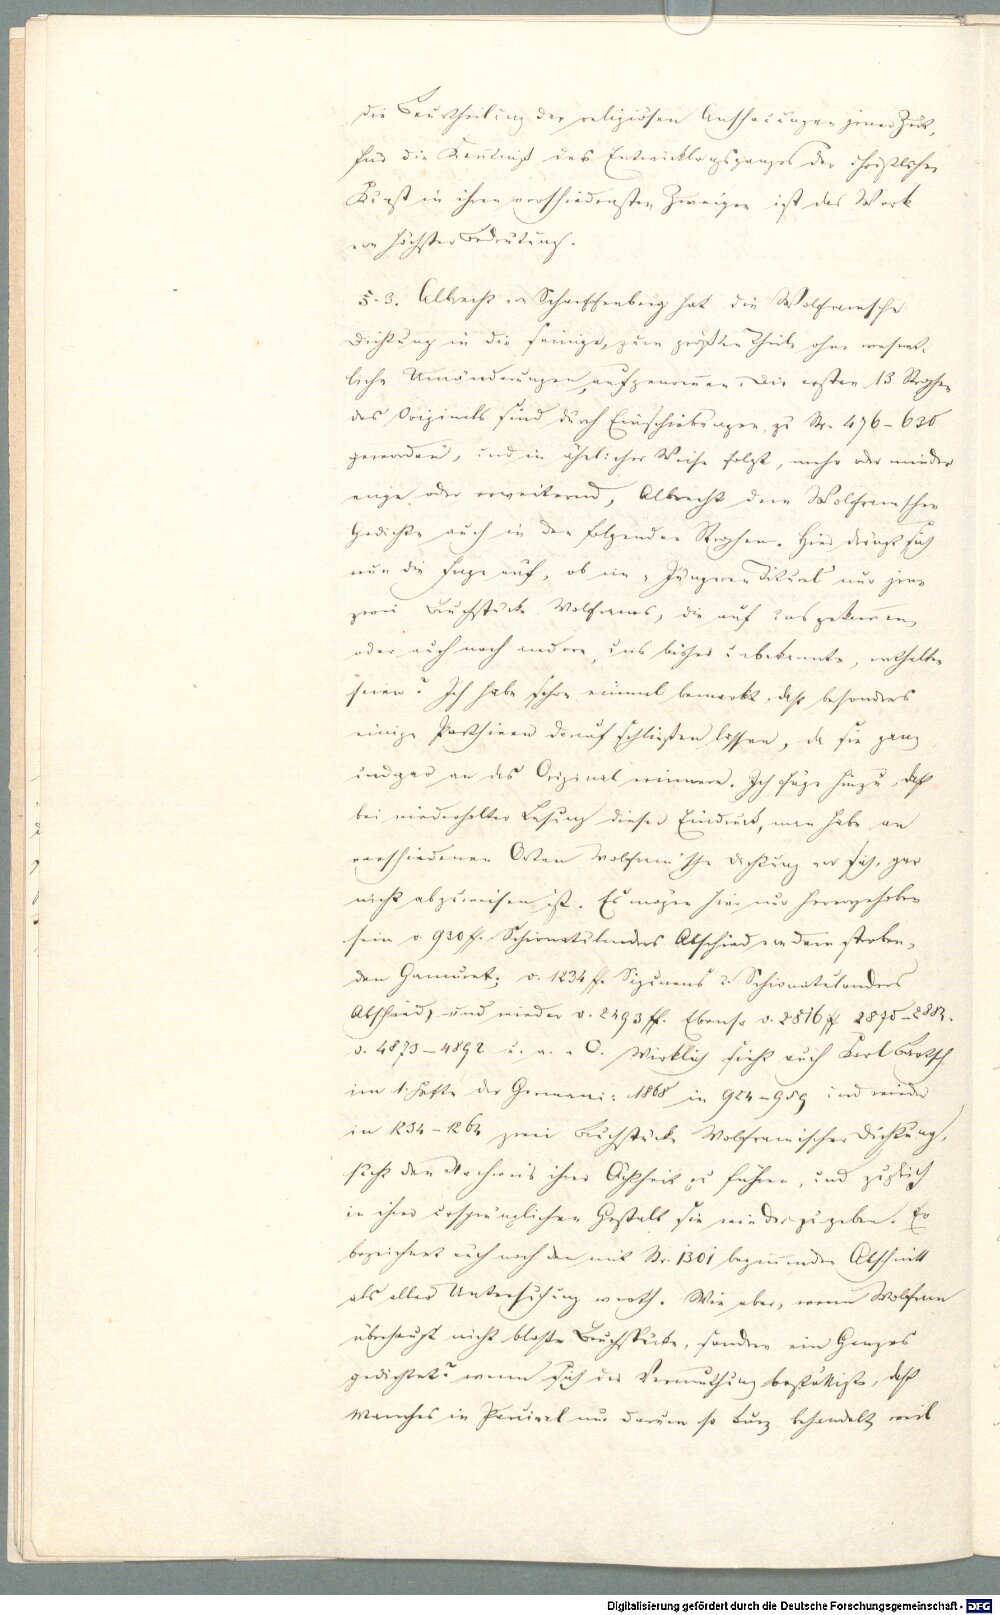 die Beurtheilung der religiösen Anschauungen jener Zeit,
für die Kenntniß des Entwicklungsganges der christlichen
Kunst in ihren verschiedensten Zweigen ist das Werk
von höchster Bedeutung.
§-3. Albrecht von Scharffenberg hat die Wolframsche
Dichtung in die seinige, zum größten Theile ohne wesent-
liche Umänderungen, aufgenommen. Die ersten 13 Strophen
des Originals sind durch Einschiebungen zu Str. 476-636
geworden, und in ähnlicher Weise folgt, mehr oder minder
enge oder erweiternd, Albrecht dem Wolframschen
Gedichte auch in den folgenden Strophen. Hier drängt sich
nun die Frage auf, ob im „Jüngeren Titurel" nur jene
zwei Bruchstücke Wolframs, die auf uns gekommen,
oder auch noch andere, uns bisher unbekannte, enthalten
seien? Ich habe schon einmal bemerkt, daß besonders
einige Parthieen darauf schließen lassen, da sie ganz
und gar an das Original erinnern. Ich füge hinzu, daß
bei wiederholter Lesung dieser Eindruck, man habe an
verschiedenen Orten Wolfram'sche Dichtung vor sich, gar
nicht abzuweisen ist. Es mögen hier nur hervorgehoben
sein v. 930 ff. Schionatulanders Abschied von dem sterben-
den Gamuret; v. 1234 ff. Sigunens u. Schionatulanders
Abschied, und wieder v. 2493 ff. Ebenso v. 2816 ff 2875-2882.
v. 4873-4892 u. a. a. O. Wirklich sieht auch Karl Bartsch
im 1. Hefte der Germania 1868 in 924-959 und wieder
in 1234-1264 zwei Bruchstücke Wolframischer Dichtung,
sucht den Nachweis ihrer Ächtheit zu führen, und zugleich
in ihrer ursprünglichen Gestalt sie wiederzugeben. Er
bezeichnet auch noch den mit Str. 1301 beginnenden Abschnitt
als aller Untersuchung werth. Wie aber, wenn Wolfram
überhaupt nicht bloße Bruchstücke, sondern ein Ganzes
gedichtet? wenn sich die Vermuthung bestättigte, daß
Manches im Parcival nur darum so kurz behandelt, weil
Digitalisierung gefördert durch die Deutsche Forschungsgemeinschaft - DFG